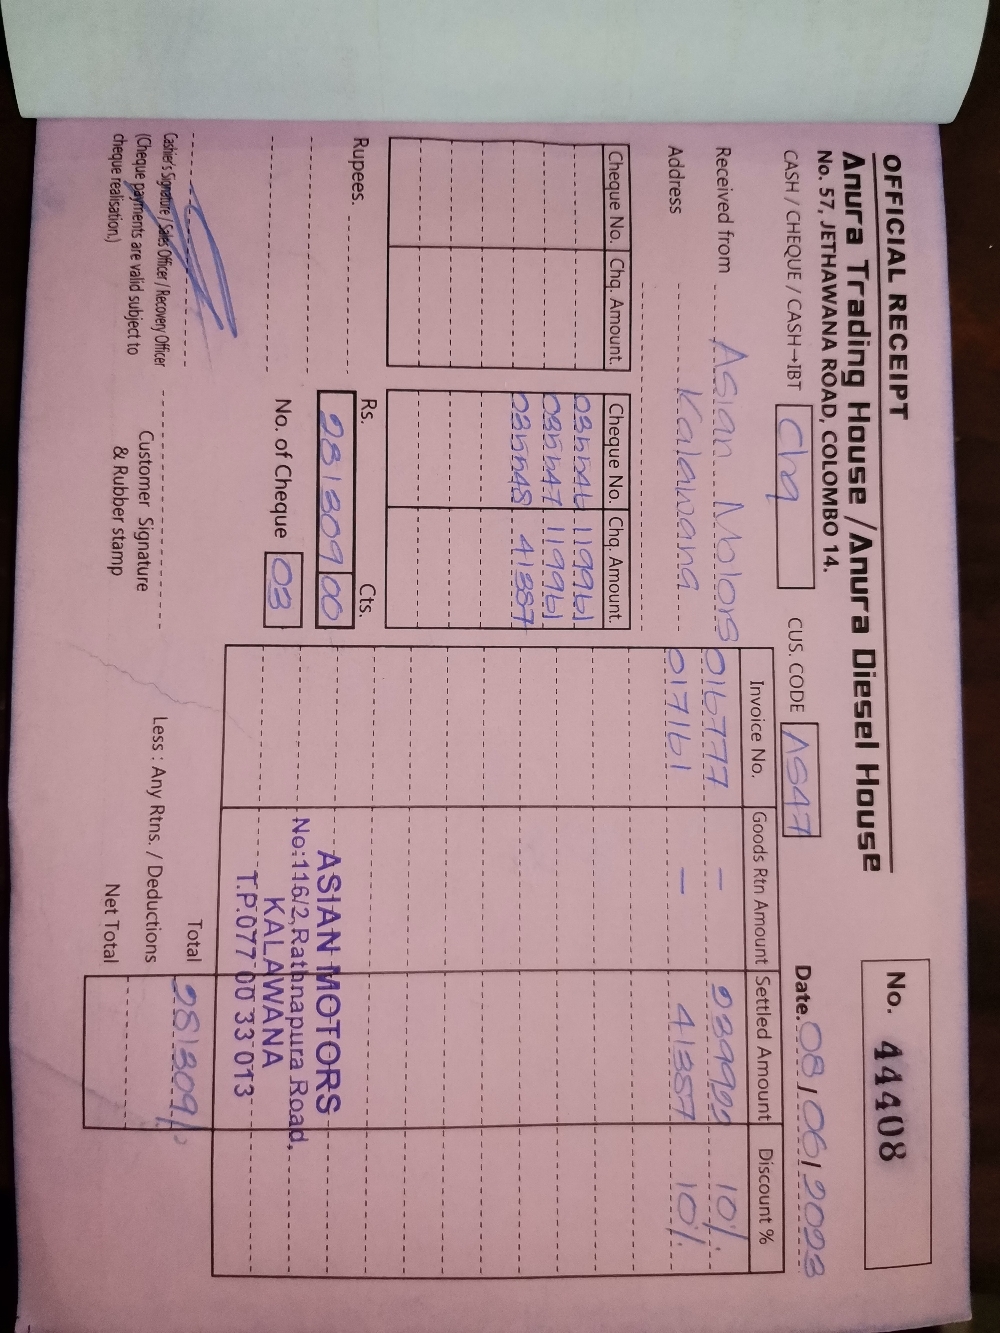 OFFICIAL RECEIPT
No. 44408
Anura Trading House /Anura Diesel House
No. 57, JETHAWANA ROAD, COLOMBO 14.
Date. 08/06/2023
CASH / CHEQUE / CASH→IBT Chq
CUS. CODE AS47
Received from Asian Motors
Address Kalawana
Cheque No. Chq. Amount.
Cheque No. Chq. Amount.
119961
119961
41387
Rupees.
Rs. Cts.
281309 00
No. of Cheque 03
Invoice No. Goods Rtn Amount Settled Amount Discount %
016777 – 10%
017161 – 41387 10%
ASIAN MOTORS
No:116/2, Rathnapura Road,
KALAWANA
T.P.077 00 33 013
Total 281309/
Less : Any Rtns. / Deductions
Net Total
Cashier's Signature / Sales Officer / Recovery Officer
(Cheque payments are valid subject to
cheque realisation.)
Customer Signature
& Rubber stamp